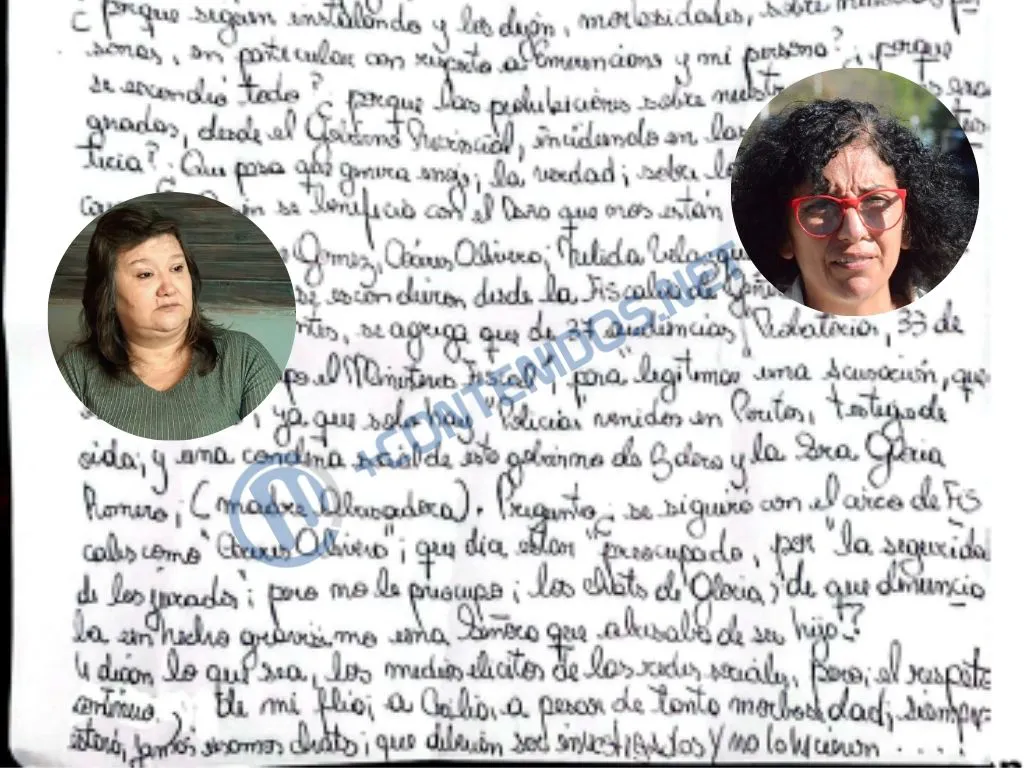 ¿ porque siguen instalando y les dejan, morbosidades, sobre
sonas, en particular con respeto a Emerenciano y mi persona? ¿ porque
se escondio todo? porque las
gnados, desde el Gobierno Provincial, incidiendo en las
ticia? Que pasa que genera enojo; la verdad; sobre
se beneficio con el Daño que nos están
Gomez, Cáceres Olivera; Nelida Velaz
se escondieron desde la Fiscalia de
ntes, se agrega que de 37 audiencias Probatorias, 33 de
el Ministerio Fiscal", para "legitimar una acusación, que
ya que solo hay Policias venidos en Peritos, testigo de
oida; y una condena social de este gobierno de Zdero y la Sra Gloria
Romero; (madre Abusadora). Pregunto; se siguiro con el arco de Fis
cales como "Cáceres Olivera"; que dia estar "preocupado, por "la segurida
de los jurados"; pero no le preocupo; los chats de Gloria; de que denuncia
la un hecho gravisimo una Señora que abusaba de su hijo"?
Y dicon lo que sea, los medios elicitos de las redes sociales, pero; el respeto
continuo. De mi flia; a Cecilia, a pesar de tanto morbosidad; siempre
estará, jamás usamos chats; que debieron ser investigados y no lo hicieron ....!
+CONTENIDOS.NET